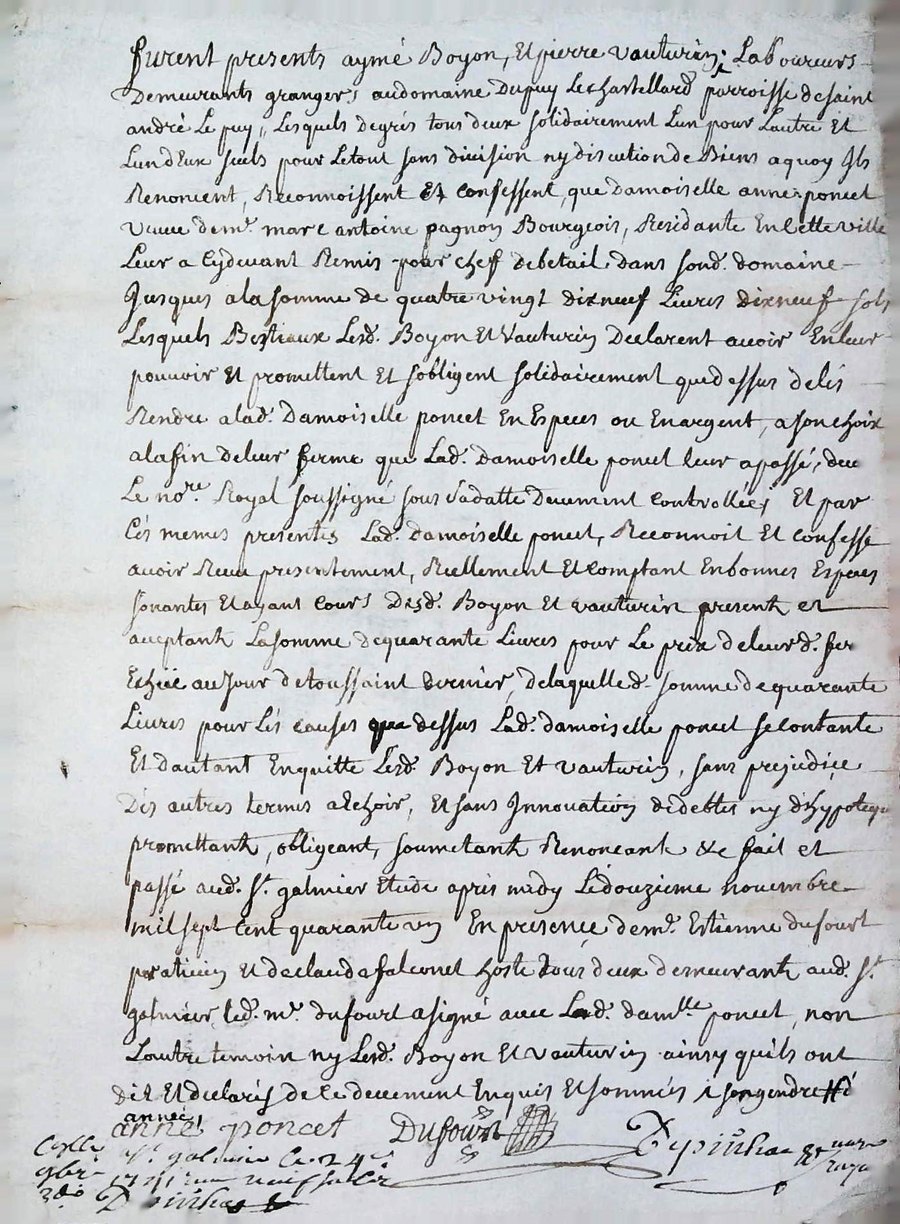 furent presents aymé Boyon, Et pierre vauturin, Laboureurs
Demeurants grangers audomaine Dupuy Lechastellard parroisse desaint
andré Le puy, Lesquels degrés tous deux solidairement Lun pour Lautre Et
Lun dEux seuls pour Letout sans division ny discution de Biens aquoy Ils
Renoncent, Reconnoissent Et confessent, que damoiselle anne poncet
veuve demr. marc antoine pagnon Bourgeois, Residante En cette ville
Leur a Cydevant Remis pour cheff debetail dans sond. domaine
Jusques alasomme de quatre vingt dixneuf Livres dixneuf sols
Lesquels Bestiaux Lesd. Boyon Et Vauturin Declarent avoir Enleur
pouvoir Et promettent Et sobligent solidairement quedessus delés
Rendre alad. Damoiselle poncet En Especes ou Enargent, asonchoix
alafin deleur ferme que Lad. Damoiselle poncet leur apassé, dev
Le nore. Royal soussigné sous sadatte Deuement Controllée, Et par
Cés memes presentes Lad. Damoiselle poncet, Reconnoit Et confesse
avoir Receu presentement, Reellement Et comptant Enbonnes Especes
sonantes Et ayant cours Desd. Boyon Et vauturin present et
aceptant Lasomme dequarante Livres pour Le prix deleurd. fer
Echüe au Jour detoussaint dernier, delaquelled. somme dequarante
Livres pour Lés causes que dessus Lad. damoiselle poncet secontante
Et dautant Enquitte Lesd. Boyon Et vauturin, sans prejudice
Dés autres termes aechoir, Et sans Innovation dedebtes ny dhypoteque
promettant, obligeant, soumetant Renonceant &c fait et
passé aud. St. galmier Etude aprés midy Ledouzieme novembre
mil sept Cent quarante un En presence demr. Estienne dufourt
praticien Et declaude falconet hoste tous deux demeurant aud. St.
galmier, led. mr. dufourt asigné avec Lad. damlle poncet, non
Lautre temoin ny Lesd. Boyon Et vauturin ainsy quils ont
dit Et declarés dece deuement Enquis Et sommés
anne poncet Dufourt
St. galmier ce 24e